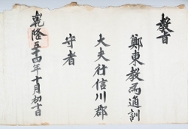 敎旨
鄭東敎爲通訓
大夫行信川郡
守者
乾隆五十四年十月初十日